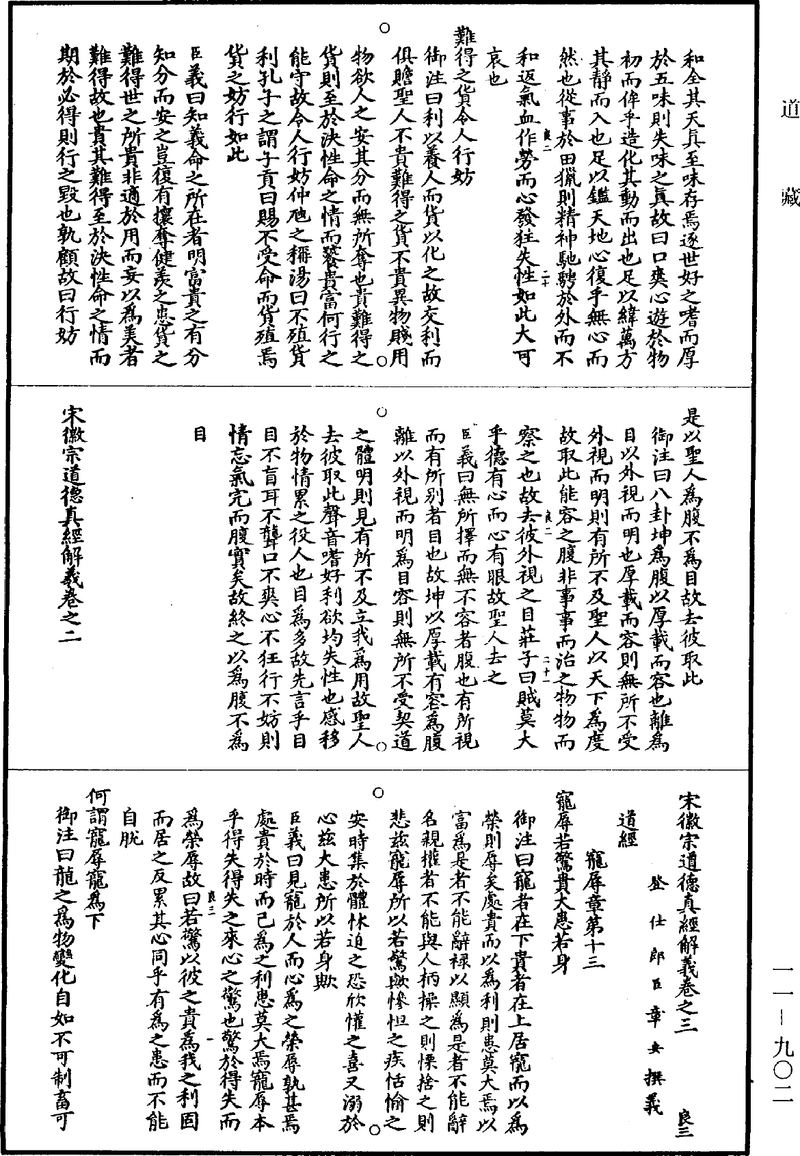 道藏
和全其天眞至味存焉逐世好之嗜而厚
於五味則失味之眞故曰口爽心遊於物
初而侔乎造化其動而出也足以緯萬方
其靜而入也足以鑑天地心復乎無心而
然也從事於田獵則精神馳騁於外而不
良二
二十
和返氣血作勞而心發狂失性如此大可
哀也
難得之貨令人行妨
御注曰利以養人而貨以化之故交利而
俱贍聖人不貴難得之貨不貴異物賤用
物欲人之安其分而無所奪也貴難得之
貨則至於決性命之情而饕貴富何行之
能守故令人行妨仲虺之稱湯曰不殖貨
利孔子之謂子貢曰賜不受命而貨殖焉
貨之妨行如此
臣義曰知義命之所在者明富貴之有分
知分而安之豈復有攘奪健羨之患貨之
難得世之所貴非適於用而妄以為美者
難得故也貴其難得至於決性命之情而
期於必得則行之毀也孰顧故曰行妨
是以聖人為腹不為目故去彼取此
御注曰八卦坤為腹以厚載而容也離為
目以外視而明也厚載而容則無所不受
外視而明則有所不及聖人以天下為度
故取此能容之腹非事事而治之物物而
良二
二十一
察之也故去彼外視之目莊子曰賊莫大
乎德有心而心有眼故聖人去之
臣義曰無所擇而無不容者腹也有所視
而有所別者目也故坤以厚載有容為腹
離以外視而明為目容則無所不受契道
之體明則見有所不及立我為用故聖人
去彼取此聲音嗜好利欲均失性也感移
於物情累之役人也目為多故先言乎目
目不盲耳不聾口不爽心不狂行不妨則
情忘氣完而腹實矣故終之以為腹不為
目
宋徽宗道德真經解義卷之二
宋徽宗道德真經解義卷之三
良三
登仕郎臣章安撰義
道經
寵辱章第十三
寵辱若驚貴大患若身
御注曰寵者在下貴者在上居寵而以為
榮則辱矣處貴而以為利則患莫大焉以
富為是者不能辭祿以顯為是者不能辭
名親權者不能與人柄操之則慄捨之則
悲茲寵辱所以若驚歟慘怛之疾恬愉之
安時集於體怵迫之恐欣懽之喜又溺於
心茲大患所以若身歟
臣義曰見寵於人而心為之榮辱孰甚焉
處貴於時而己為之利患莫大焉寵辱本
乎得失得失之來心之驚也驚於得失而
良三
一
為榮辱故曰若驚以彼之貴為我之利固
而居之反累其心同乎有為之患而不能
自脫
何謂寵辱寵為下
御注曰龍之為物變化自如不可制畜可
一一－九〇二